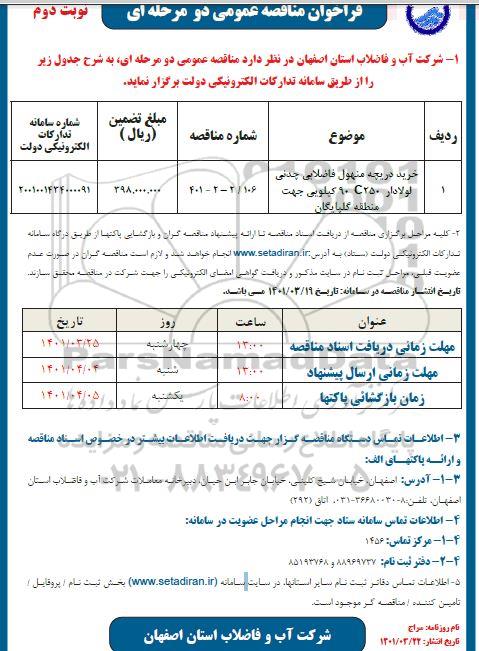 فراخوان مناقصه عمومی دو مرحله ای
نوبت دوم
۱- شرکت آب و فاضلاب استان اصفهان در نظر دارد مناقصه عمومی دو مرحله ای، به شرح جدول زیر
را از طریق سامانه تدارکات الکترونیکی دولت برگزار نماید.
ردیف
موضوع
شماره مناقصه
مبلغ تضمین (ریال)
شماره سامانه تدارکات الکترونیکی دولت
۱
خرید دریچه منهول فاضلابی چدنی
لولادار C۲۵۰ ۹۰ کیلویی جهت
منطقه گلپایگان
۴۰۱ - ۲ - ۲ / ۱۰۶
۳۹۸,۰۰۰,۰۰۰
۲۰۰۱۰۰۱۴۳۴۰۰۰۰۹۱
۲- کلیه مراحل برگزاری مناقصه از دریافت اسناد مناقصه تا ارائه پیشنهاد مناقصه گران و بازگشایی پاکتها از طریق درگاه سامانه
تدارکات الکترونیکی دولت (ستاد) به آدرس: www.setadiran.ir انجام خواهد شد و لازم است مناقصه گران در صورت عدم
عضویت قبلی، مراحل ثبت نام در سایت مذکور و دریافت گواهی امضای الکترونیکی را جهت شرکت در مناقصه محقق سازند.
تاریخ انتشار مناقصه در سامانه: تاریخ ۱۴۰۱/۰۳/۱۹ می باشد.
عنوان
ساعت
روز
تاریخ
مهلت زمانی دریافت اسناد مناقصه
۱۳:۰۰
چهارشنبه
۱۴۰۱/۰۳/۲۵
مهلت زمانی ارسال پیشنهاد
۱۳:۰۰
شنبه
۱۴۰۱/۰۴/۰۴
زمان بازگشائی پاکتها
۸:۰۰
یکشنبه
۱۴۰۱/۰۴/۰۵
ParsNamadData
۰۲۱-۸۸۳۴۹۶۷۰-۵
۳- اطلاعات تماس دستگاه مناقصه گزار جهت دریافت اطلاعات بیشتر در خصوص اسناد مناقصه
و ارائه پاکتهای الف:
۳-۱- آدرس: اصفهان، خیابان شیخ کلینی، خیابان جابر ابن حیان، دبیرخانه معاملات شرکت آب و فاضلاب استان
اصفهان، تلفن: ۸-۰۳۱-۳۶۶۸۰۰۳۰، اتاق (۲۹۲)
۴- اطلاعات تماس سامانه ستاد جهت انجام مراحل عضویت در سامانه:
۴-۱- مرکز تماس: ۱۴۵۶
۴-۲- دفتر ثبت نام: ۸۸۹۶۹۷۳۷ و ۸۵۱۹۳۷۶۸
۵- اطلاعات تماس دفاتر ثبت نام سایر استانها، در سایت سامانه (www.setadiran.ir) بخش ثبت نام / پروفایل /
تامین کننده / مناقصه گر موجود است.
شرکت آب و فاضلاب استان اصفهان
نام روزنامه: سراج
تاریخ انتشار: ۱۴۰۱/۰۳/۲۲